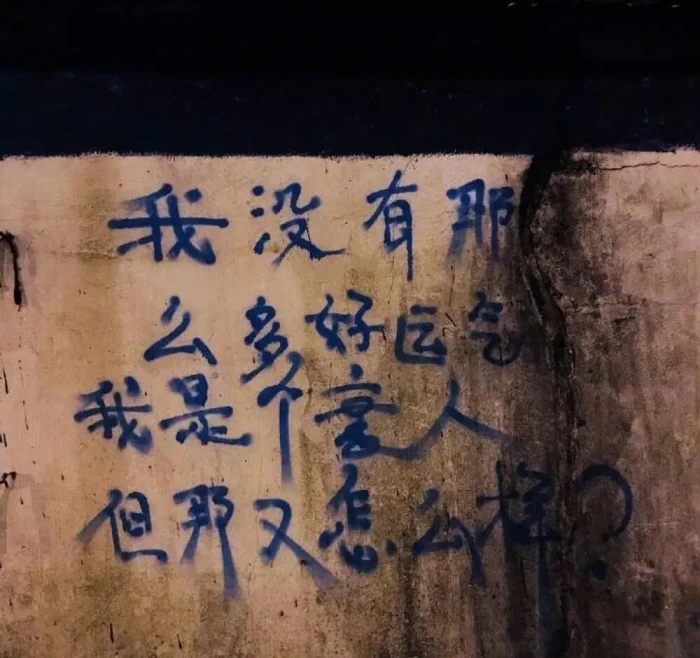 我没有那
么多好运气
我是个衰人
但那又怎么样?